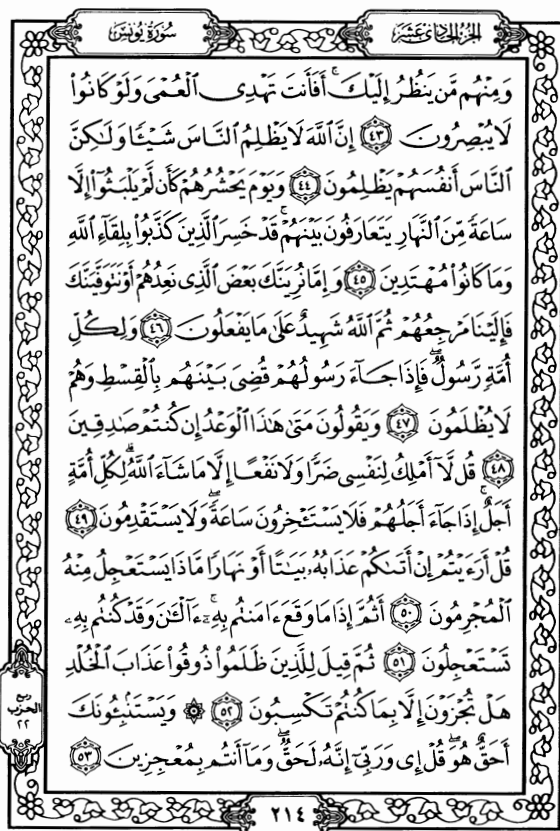 الجزء الحادي عشر
سورة يونس
وَمِنْهُم مَّن يَنظُرُ إِلَيْكَ ۚ أَفَأَنتَ تَهْدِى ٱلْعُمْىَ وَلَوْ كَانُوا۟
لَا يُبْصِرُونَ ٤٣ إِنَّ ٱللَّهَ لَا يَظْلِمُ ٱلنَّاسَ شَيْـًٔا وَلَـٰكِنَّ
ٱلنَّاسَ أَنفُسَهُمْ يَظْلِمُونَ ٤٤ وَيَوْمَ يَحْشُرُهُمْ كَأَن لَّمْ يَلْبَثُوٓا۟ إِلَّا
سَاعَةً مِّنَ ٱلنَّهَارِ يَتَعَارَفُونَ بَيْنَهُمْ ۚ قَدْ خَسِرَ ٱلَّذِينَ كَذَّبُوا۟ بِلِقَآءِ ٱللَّهِ
وَمَا كَانُوا۟ مُهْتَدِينَ ٤٥ وَإِمَّا نُرِيَنَّكَ بَعْضَ ٱلَّذِى نَعِدُهُمْ أَوْ نَتَوَفَّيَنَّكَ
فَإِلَيْنَا مَرْجِعُهُمْ ثُمَّ ٱللَّهُ شَهِيدٌ عَلَىٰ مَا يَفْعَلُونَ ٤٦ وَلِكُلِّ
أُمَّةٍ رَّسُولٌ ۖ فَإِذَا جَآءَ رَسُولُهُمْ قُضِىَ بَيْنَهُم بِٱلْقِسْطِ وَهُمْ
لَا يُظْلَمُونَ ٤٧ وَيَقُولُونَ مَتَىٰ هَـٰذَا ٱلْوَعْدُ إِن كُنتُمْ صَـٰدِقِينَ
٤٨ قُل لَّآ أَمْلِكُ لِنَفْسِى ضَرًّا وَلَا نَفْعًا إِلَّا مَا شَآءَ ٱللَّهُ ۗ لِكُلِّ أُمَّةٍ
أَجَلٌ ۚ إِذَا جَآءَ أَجَلُهُمْ فَلَا يَسْتَـْٔخِرُونَ سَاعَةً ۖ وَلَا يَسْتَقْدِمُونَ ٤٩
قُلْ أَرَءَيْتُمْ إِنْ أَتَىٰكُمْ عَذَابُهُۥ بَيَـٰتًا أَوْ نَهَارًا مَّاذَا يَسْتَعْجِلُ مِنْهُ
ٱلْمُجْرِمُونَ ٥٠ أَثُمَّ إِذَا مَا وَقَعَ ءَامَنتُم بِهِۦٓ ۚ ءَآلْـَٔـٰنَ وَقَدْ كُنتُم بِهِۦ
تَسْتَعْجِلُونَ ٥١ ثُمَّ قِيلَ لِلَّذِينَ ظَلَمُوا۟ ذُوقُوا۟ عَذَابَ ٱلْخُلْدِ
هَلْ تُجْزَوْنَ إِلَّا بِمَا كُنتُمْ تَكْسِبُونَ ٥٢ ۞ وَيَسْتَنۢبِـُٔونَكَ
أَحَقٌّ هُوَ ۖ قُلْ إِى وَرَبِّىٓ إِنَّهُۥ لَحَقٌّ ۖ وَمَآ أَنتُم بِمُعْجِزِينَ ٥٣
ربع
الحزب
٢٢
٢١٤